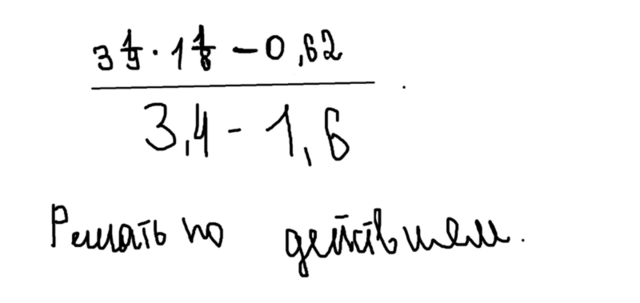 3 1/9 · 1 1/8 - 0,62
3,4 - 1,6
Решать по действиям.